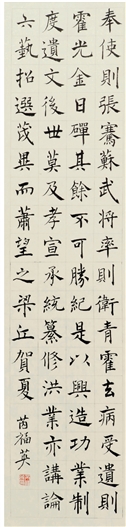 奉使則張騫蘇武將率則衛青霍去病受遺則
霍光金日磾其餘不可勝紀是以興造功業制
度遺文後世莫及孝宣承統纂修洪業亦講論
六藝招選茂異而蕭望之梁丘賀夏
芮福英